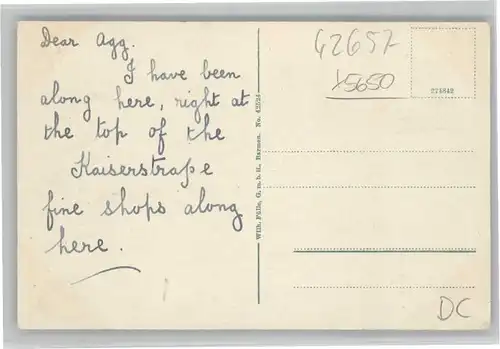 Dear Agg.
I have been
along here, right at
the top of the
Kaiserstraße
fine shops along
here.
Wilh. Fülle, G.m.b.H., Barmen. No. 42524
42657
15650
274842
DC